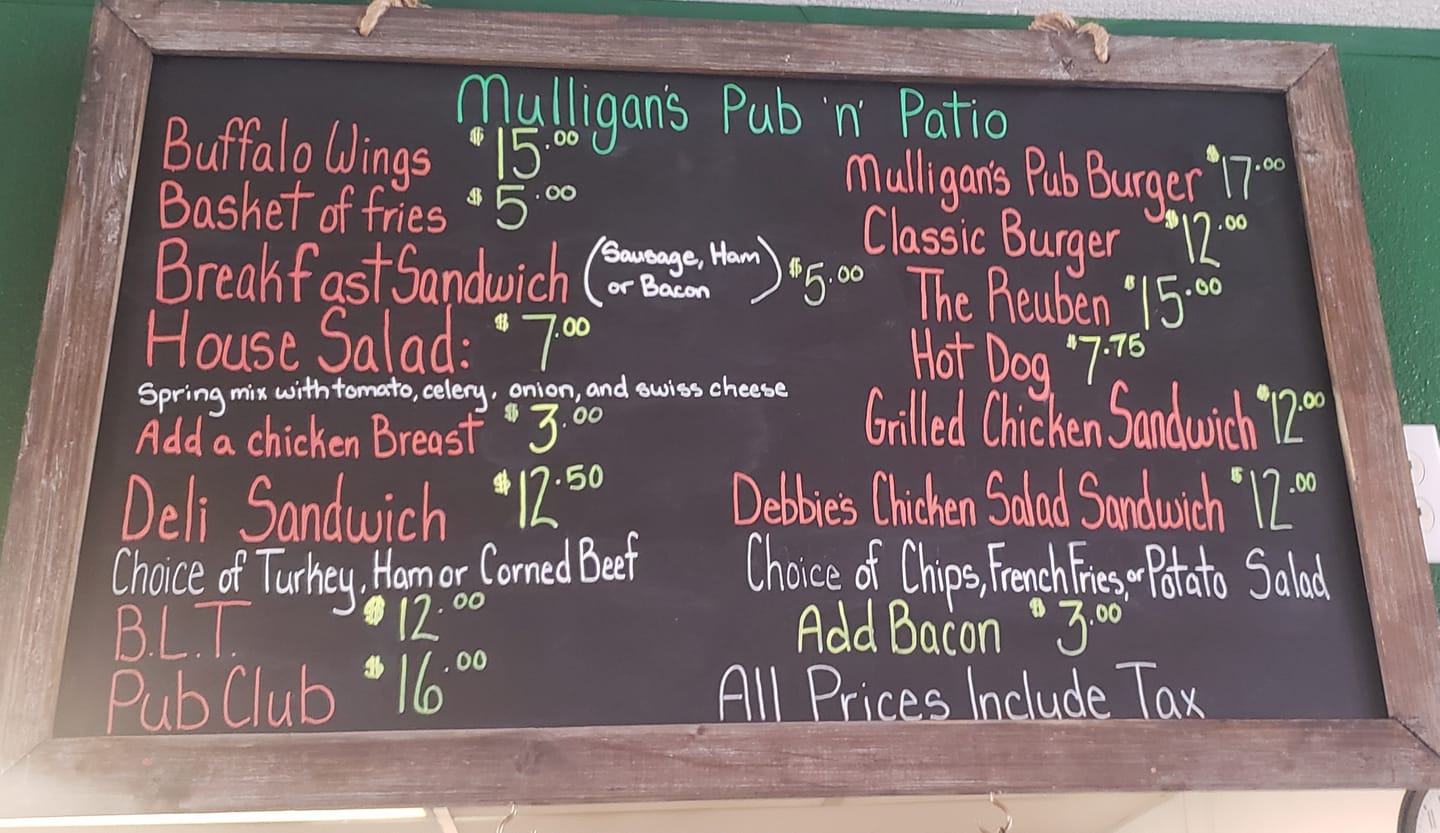 Mulligan's Pub 'n' Patio
Buffalo Wings $15.00
Basket of fries $5.00
Breakfast Sandwich (Sausage, Ham or Bacon) $5.00
House Salad: $7.00
Spring mix with tomato, celery, onion, and swiss cheese
Add a chicken Breast $3.00
Deli Sandwich $12.50
Choice of Turkey, Ham or Corned Beef
B.L.T. $12.00
Pub Club $16.00
Mulligan's Pub Burger $17.00
Classic Burger $12.00
The Reuben $15.00
Hot Dog $7.75
Grilled Chicken Sandwich $12.00
Debbie's Chicken Salad Sandwich $12.00
Choice of Chips, French Fries, or Potato Salad
Add Bacon $3.00
All Prices Include Tax